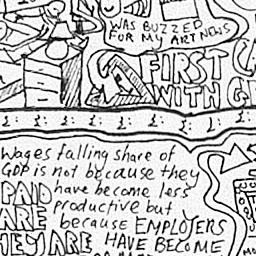 WAS BUZZED
FOR MY ART NOWS
FIRST
WITH
£: £: £: £: £: £: £: £: £:
Wages falling share of
GDP is not because they
PAID have become less
ARE productive but
because EMPLOYERS
THEY ARE HAVE BECOME